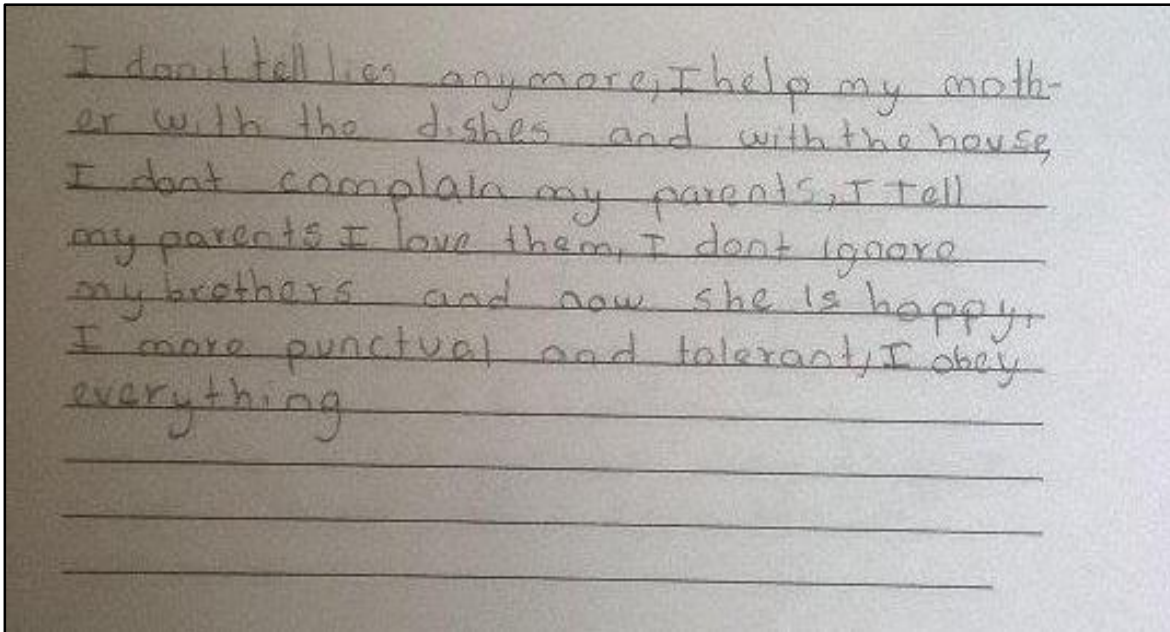 I don't tell lies anymore, I help my moth-
er with the dishes and with the house,
I dont complain my parents, I tell
my parents I love them, I dont ignore
my brothers and now she is happy,
I more punctual and tolerant, I obey
everything